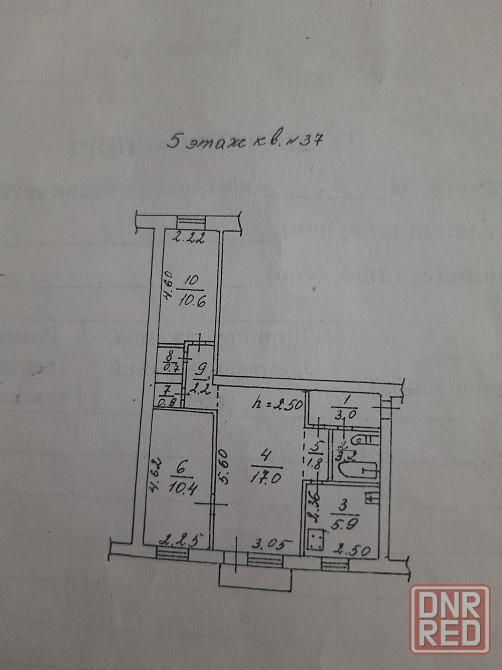 5 этаж кв. №37
2.22
4.60
10
10.6
8
0.7
9
2.2
7
0.9
h=2.50
1
3.0
4
17.0
5.60
5
1.8
2
3.2
6
10.4
4.62
2.36
3
5.9
2.25
3.05
2.50
DNR
RED